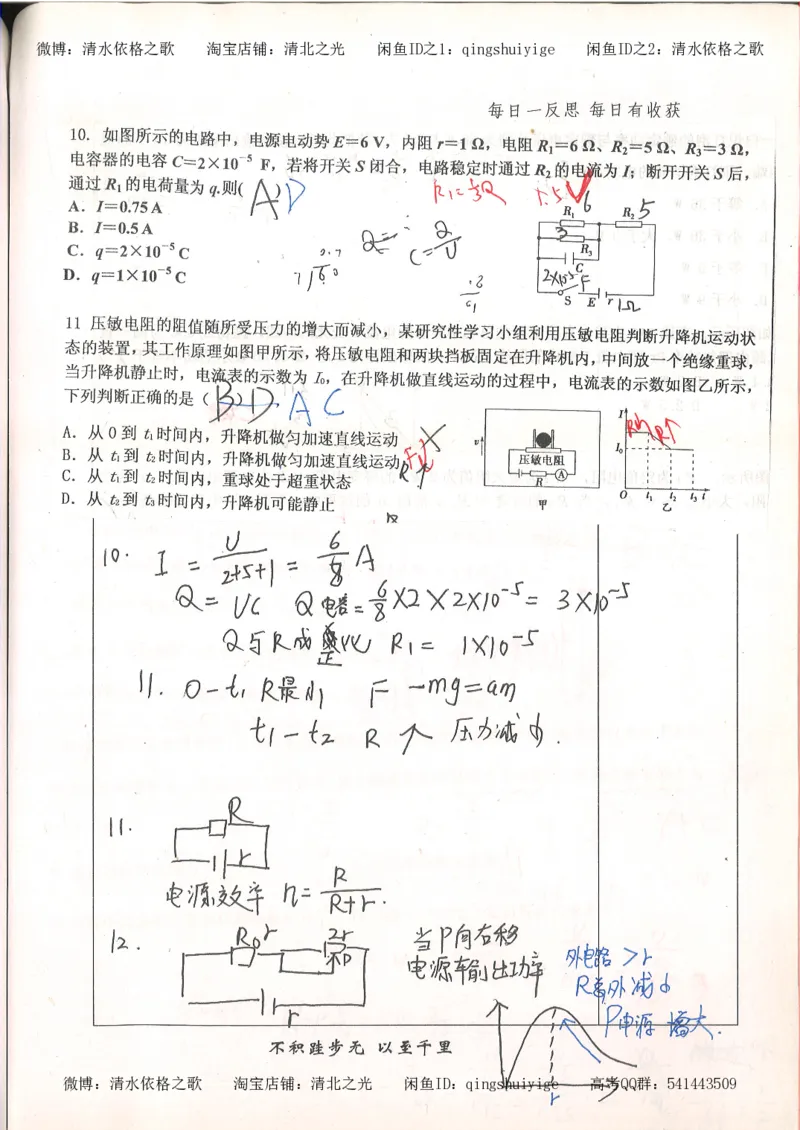 微博：清水依格之歌 淘宝店铺：清北之光 闲鱼ID之1：qingshuiyige 闲鱼ID之2：清水依格之歌
每日一反思 每日有收获
10. 如图所示的电路中，电源电动势 E＝6 V，内阻 r＝1 Ω，电阻 R₁＝6 Ω、R₂＝5 Ω、R₃＝3 Ω，
电容器的电容 C＝2×10⁻⁵ F，若将开关 S 闭合，电路稳定时通过 R₂ 的电流为 I；断开开关 S 后，
通过 R₁ 的电荷量为 q.则( AD )
A．I＝0.75 A
B．I＝0.5 A
C．q＝2×10⁻⁵ C
D．q＝1×10⁻⁵ C
Q= C=Q/U
R₁ 6 R₂ 5
3 R₃
C
2×10⁻⁵F
S E r 1Ω
11 压敏电阻的阻值随所受压力的增大而减小，某研究性学习小组利用压敏电阻判断升降机运动状
态的装置，其工作原理如图甲所示，将压敏电阻和两块挡板固定在升降机内，中间放一个绝缘重球，
当升降机静止时，电流表的示数为 I₀，在升降机做直线运动的过程中，电流表的示数如图乙所示，
下列判断正确的是（ B)D AC
A．从 0 到 t₁ 时间内，升降机做匀加速直线运动
B．从 t₁ 到 t₂ 时间内，升降机做匀加速直线运动
C．从 t₁ 到 t₂ 时间内，重球处于超重状态
D．从 t₂ 到 t₃ 时间内，升降机可能静止
v 压敏电阻 R A 甲
I I₀ O t₁ t₂ t₃ t 乙
10. I = U/(2+5+1) = 6/8 A
Q= UC Q电容=6/8×2×2×10⁻⁵= 3×10⁻⁵
Q与R成正比 R₁= 1×10⁻⁵
11. 0-t₁ R最小 F-mg=am
t₁-t₂ R↑ 压力减小.
11. R r
电源效率 η= R/(R+r).
12. R₀ r 2r P r
当P向右移
电源输出功率
外电路>r
R外减小
P电源 增大.
r
不积跬步无 以至千里
微博：清水依格之歌 淘宝店铺：清北之光 闲鱼ID：qingshuiyige 高考QQ群：541443509